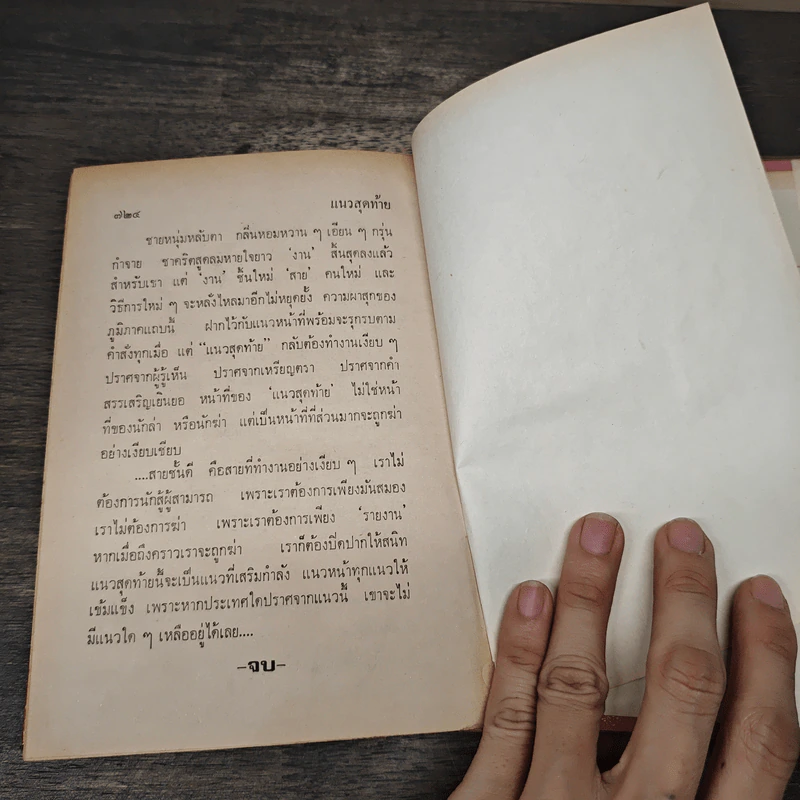 ๗๒๔
แนวสุดท้าย
ชายหนุ่มหลับตา กลิ่นหอมหวาน ๆ เอียน ๆ กรุ่น
กำจาย ชาคริตสูดลมหายใจยาว ‘งาน’ สิ้นสุดลงแล้ว
สำหรับเขา แต่ ‘งาน’ ชิ้นใหม่ ‘สาย’ คนใหม่ และ
วิธีการใหม่ ๆ จะหลั่งไหลมาอีกไม่หยุดยั้ง ความผาสุกของ
ภูมิภาคแถบนี้ ฝากไว้กับแนวหน้าที่พร้อมจะรุกรบตาม
คำสั่งทุกเมื่อ แต่ “แนวสุดท้าย” กลับต้องทำงานเงียบ ๆ
ปราศจากผู้รู้เห็น ปราศจากเหรียญตรา ปราศจากคำ
สรรเสริญเยินยอ หน้าที่ของ ‘แนวสุดท้าย’ ไม่ใช่หน้า
ที่ของนักล่า หรือนักฆ่า แต่เป็นหน้าที่ที่ส่วนมากจะถูกฆ่า
อย่างเงียบเชียบ
....สายชั้นดี คือสายที่ทำงานอย่างเงียบ ๆ เราไม่
ต้องการนักสู้ผู้สามารถ เพราะเราต้องการเพียงมันสมอง
เราไม่ต้องการฆ่า เพราะเราต้องการเพียง ‘รายงาน’
หากเมื่อถึงคราวเราจะถูกฆ่า เราก็ต้องปิดปากให้สนิท
แนวสุดท้ายนี้จะเป็นแนวที่เสริมกำลัง แนวหน้าทุกแนวให้
เข้มแข็ง เพราะหากประเทศใดปราศจากแนวนี้ เขาจะไม่
มีแนวใด ๆ เหลืออยู่ได้เลย....
-จบ-